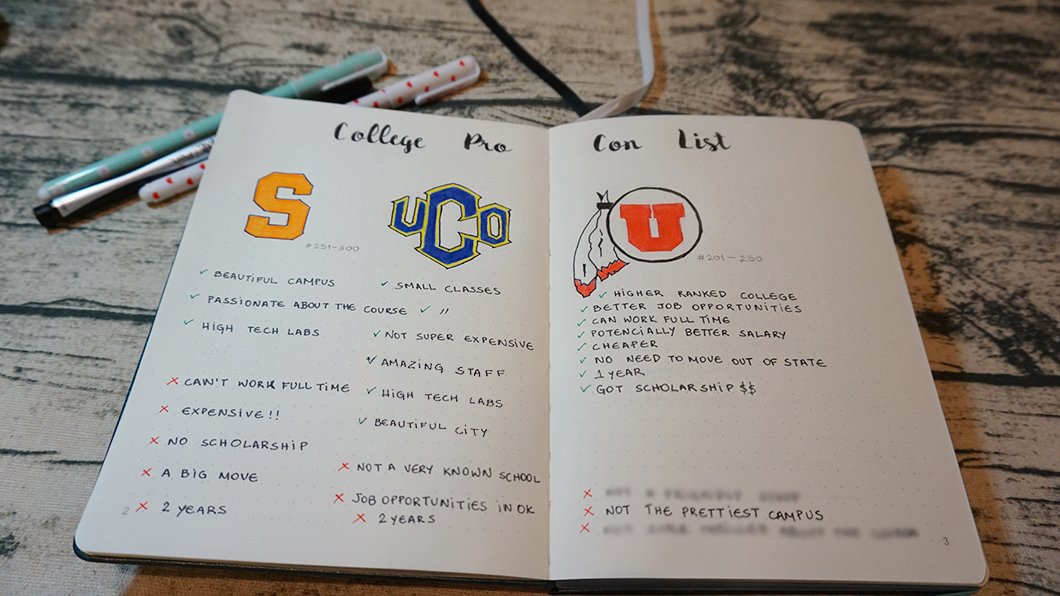 College Pro Con List
S
#251-300
BEAUTIFUL CAMPUS
PASSIONATE ABOUT THE COURSE
HIGH TECH LABS
CAN'T WORK FULL TIME
EXPENSIVE!!
NO SCHOLARSHIP
A BIG MOVE
2 YEARS
2
UCO
SMALL CLASSES
✓ //
NOT SUPER EXPENSIVE
AMAZING STAFF
HIGH TECH LABS
BEAUTIFUL CITY
NOT A VERY KNOWN SCHOOL
JOB OPPORTUNITIES IN OK
2 YEARS
U
#201-250
HIGHER RANKED COLLEGE
BETTER JOB OPPORTUNITIES
CAN WORK FULL TIME
POTENCIALLY BETTER SALARY
CHEAPER
NO NEED TO MOVE OUT OF STATE
1 YEAR
GOT SCHOLARSHIP $$
NOT THE PRETTIEST CAMPUS
3